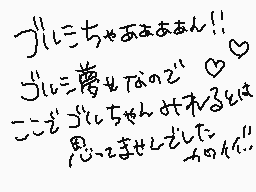 ゴルミちゃあああああん!!
ゴルミ夢女なので♡♡
ここでゴルちゃんみれるとは
思ってませんでした
カワイイ!!